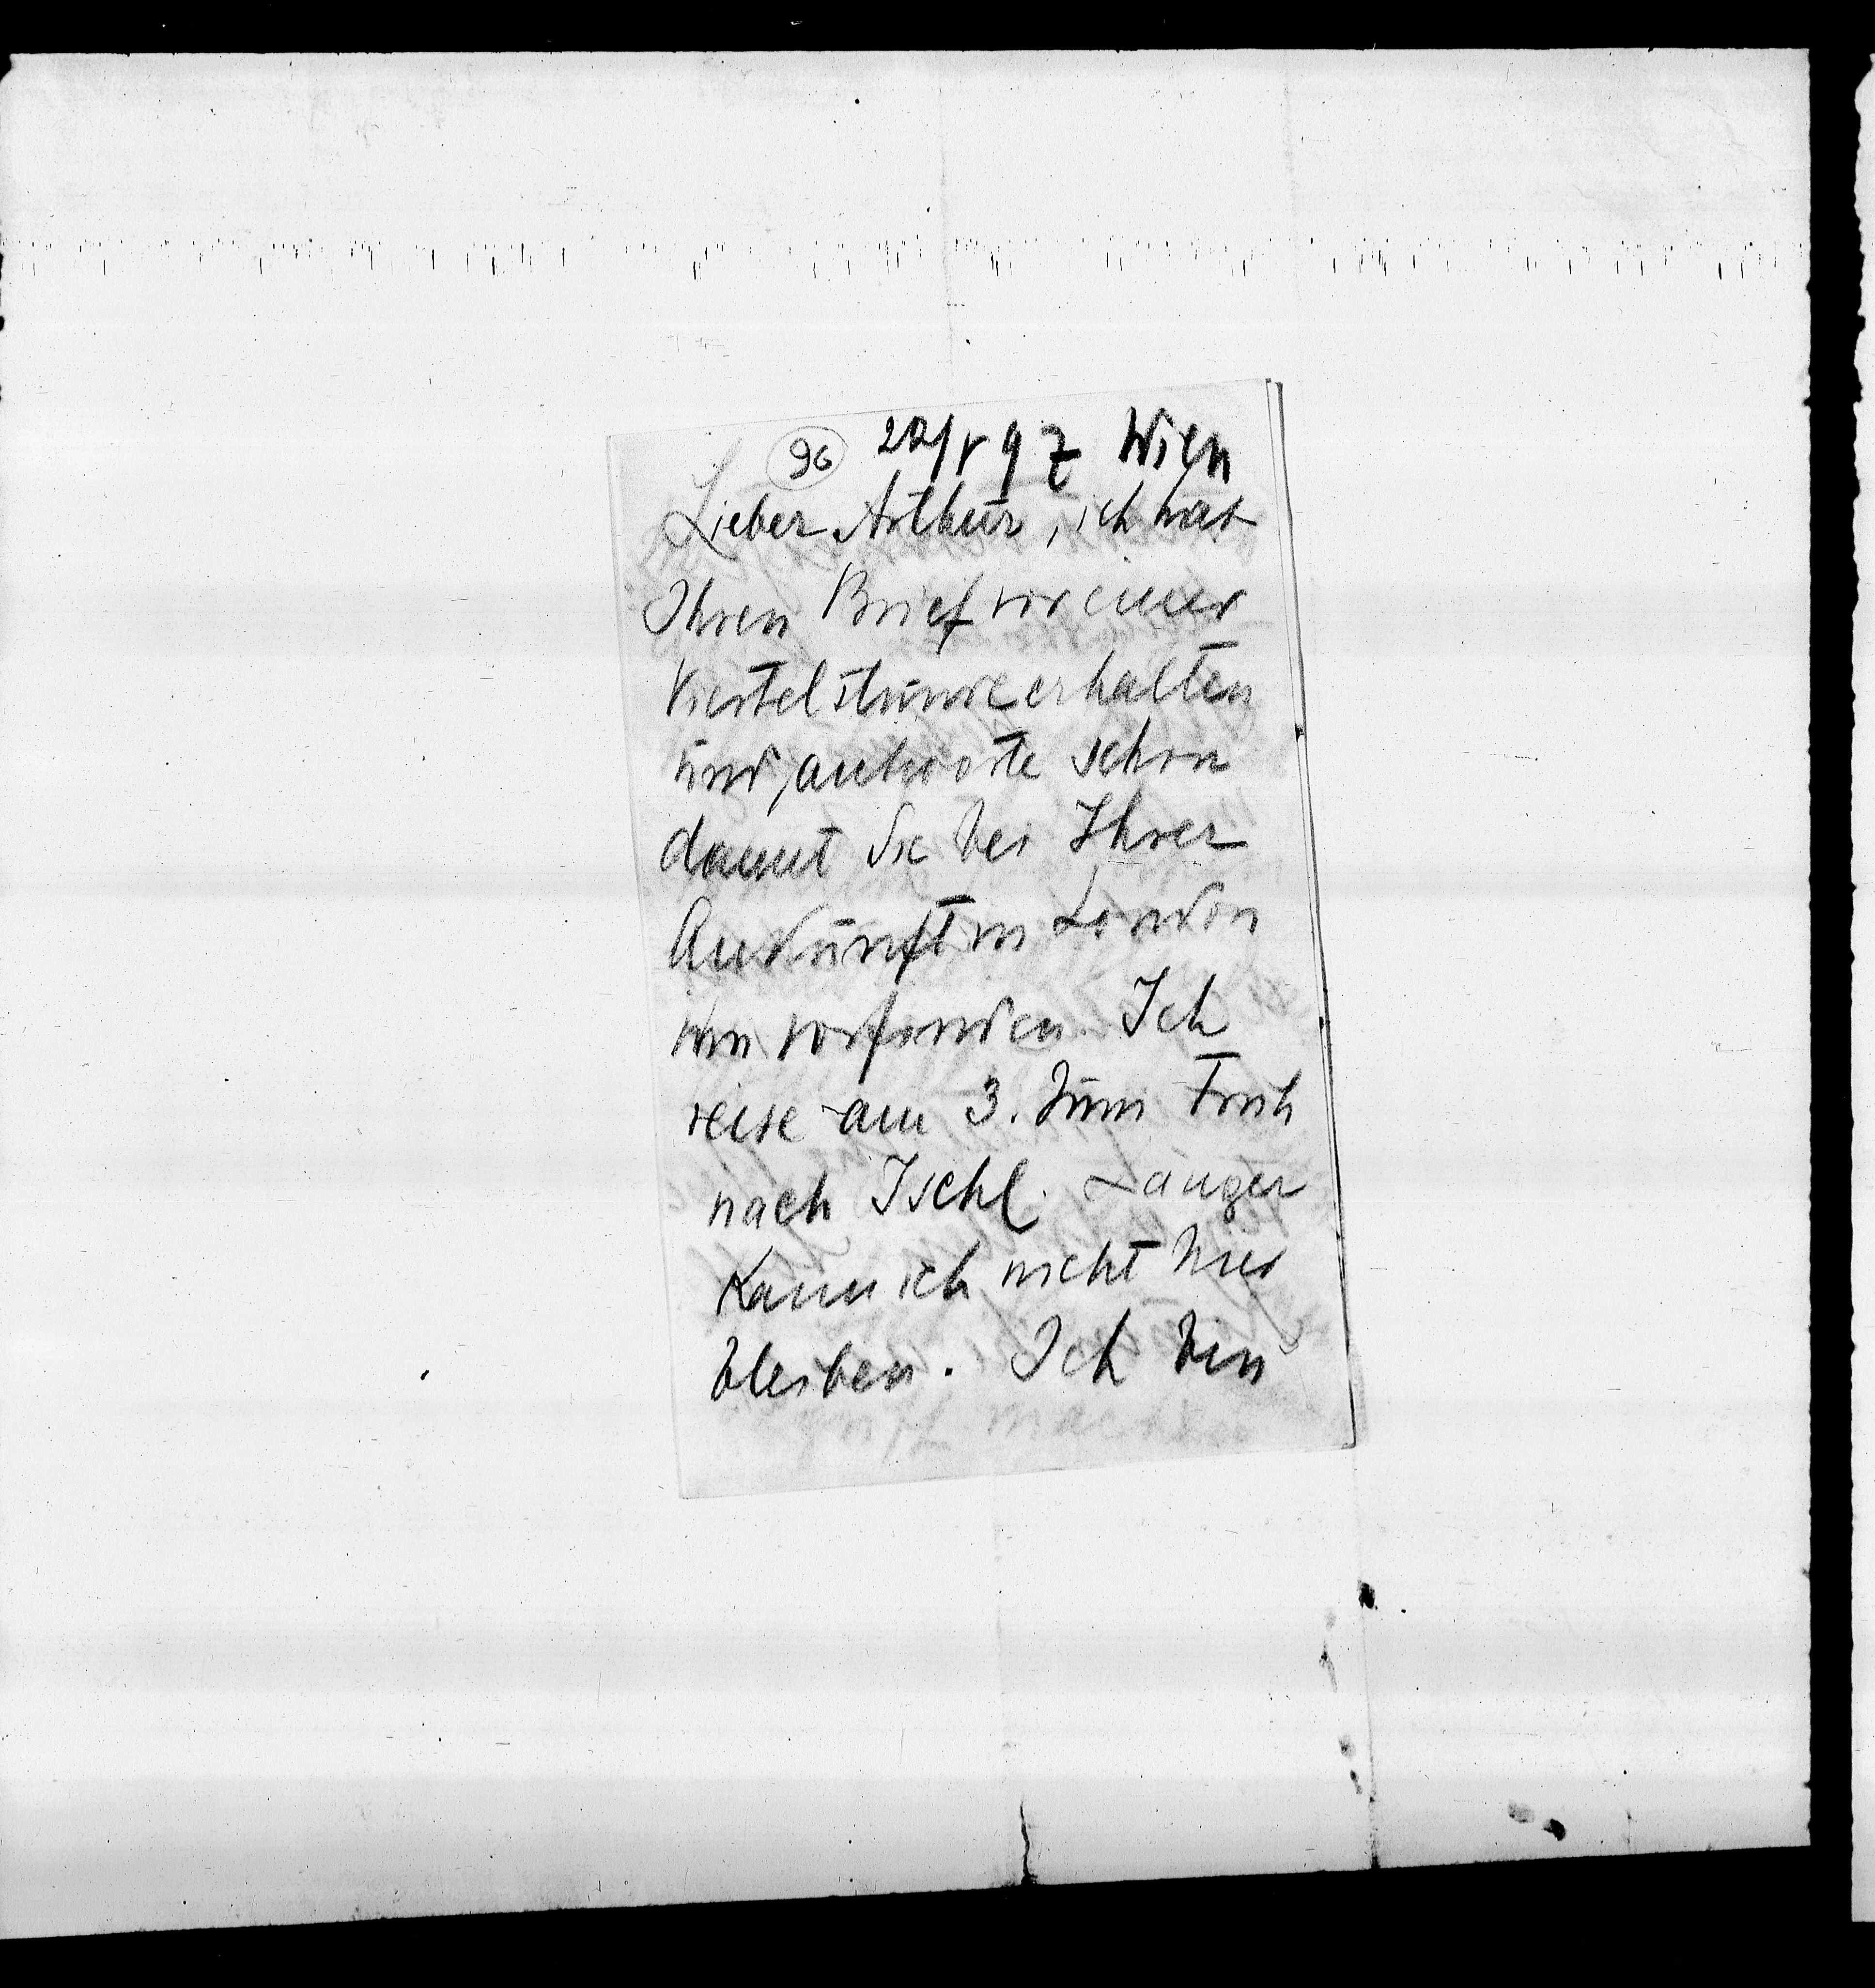 96 20/V 97 Wien
Lieber Arthur, ich hab
Ihren Brief vor einer
Viertelstunde erhalten
und antworte schon
damit Sie bei Ihrer
Ankunft in London
ihn vorfinden. Ich
reise am 3. Juni Früh
nach Ischl. Länger
kann ich nicht hier
bleiben. Ich bin